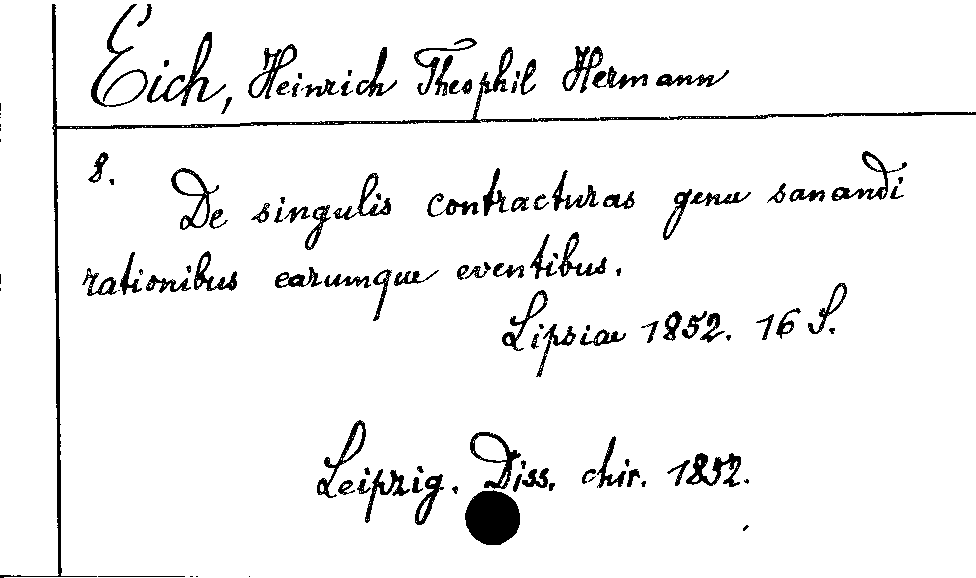 Eich, Heinrich Theophil Hermann
8.
De singulis contracturas genu sanandi
rationibus earumque eventibus.
Lipsiae 1852. 16 S.
Leipzig. Diss. chir. 1852.